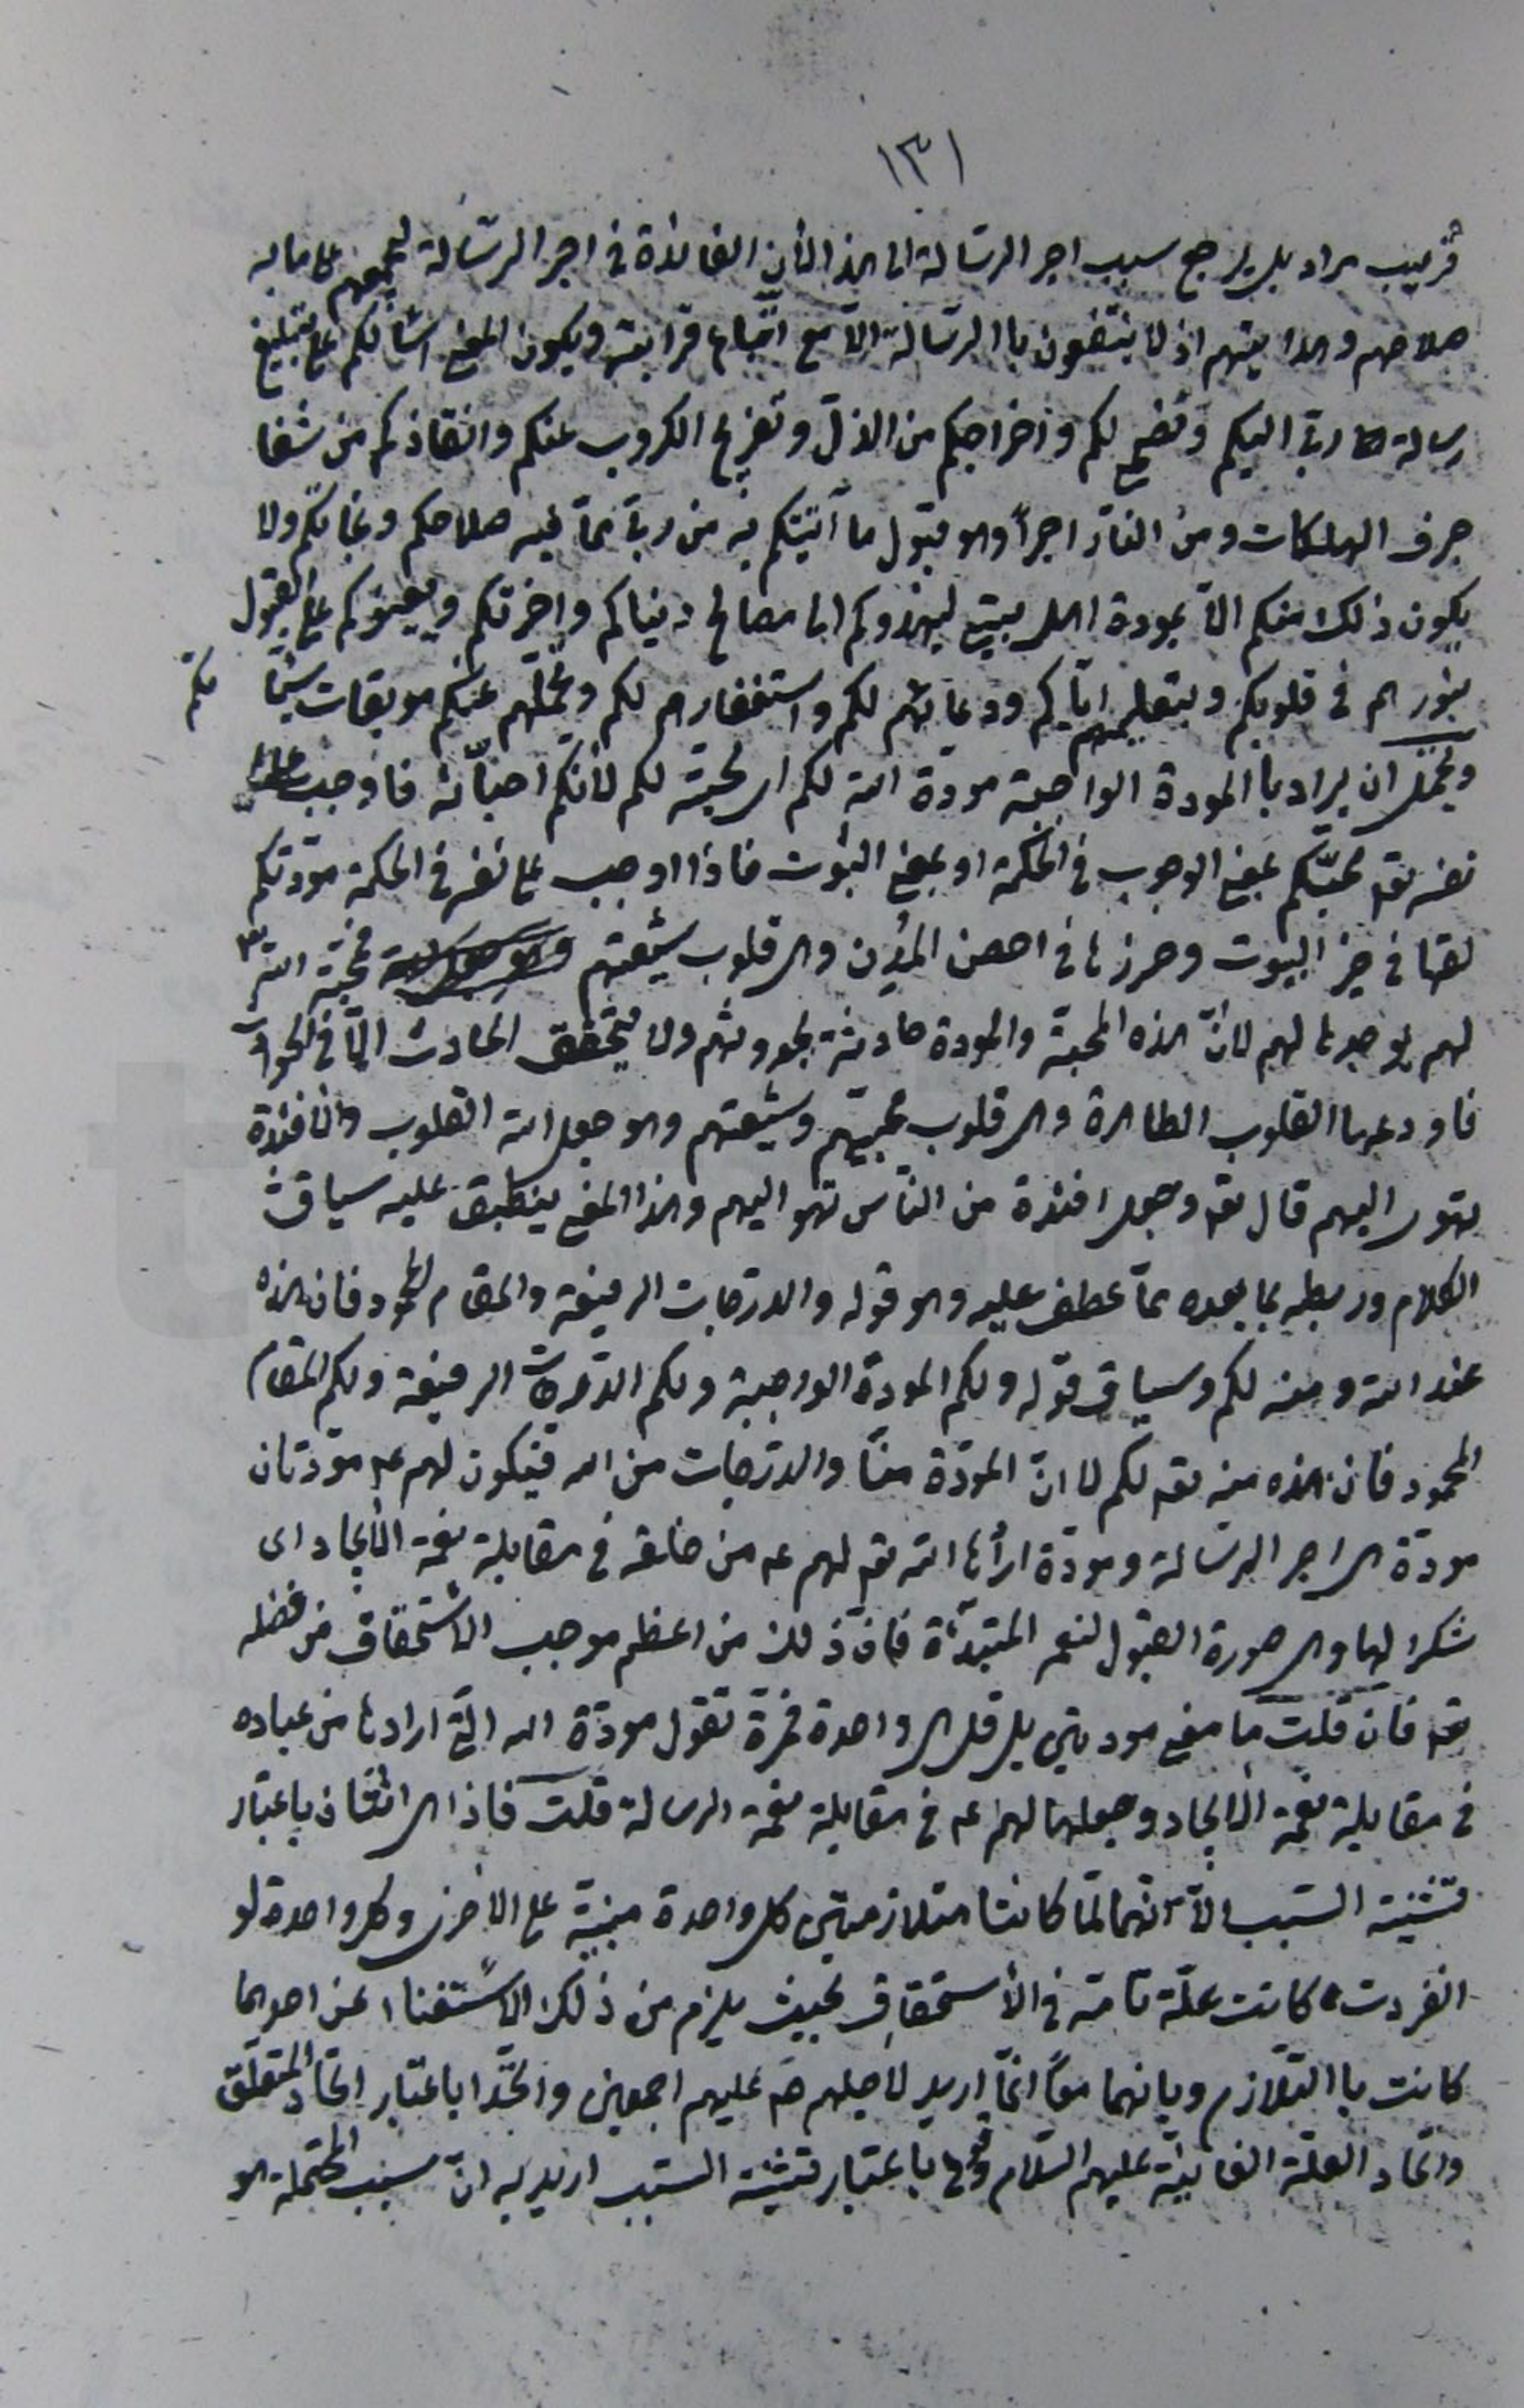 ١٣١
قريب مراد بل يرجع سبب اجر الرسالة الى هذا لأن الفائدة في اجر الرسالة لجمعهم على ما به
صلاحهم وهدايتهم اذ لا ينتفعون باالرسالة الا مع اتباع قرابته ويكون المعنى اسألكم على تبليغ
رسالة ربي اليكم ونصحي لكم واخراجكم من الذل وتفريج الكروب عنكم وانقاذكم من شفا
جرف الهلكات ومن النار اجراً وهو قبول ما آتيتكم به من ربي مما فيه صلاحكم ونجاتكم ولا
يكون ذلك منكم الا بمودة اهل بيتي ليهدوكم الى مصالح دنياكم واخرتكم ويعينوكم على القبول
بنورهم في قلوبكم وبتعليمهم اياكم ودعائهم لكم واستغفارهم لكم وتحملهم عنكم موبقات سيئا
تكم
ويحتمل ان يراد باالمودة الواجبة مودة الله لكم اى محبته لكم لأنكم احباؤه فاوجب على
نفسه تع محبتكم بمعنى الوجوب في الحكمة او بمعنى الثبوت فاذا اوجب على نفسه في الحكمة مودتكم
في البيوت وحرزها في احصن المدن وهى قلوب شيعتهم محبة الله تع
لهم يوجدها لهم لان هذه المحبة والمودة حادثة بحدوثهم ولا يتحقق الحادث الا في الحوادث
فاودعها القلوب الطاهرة وهى قلوب محبيهم وشيعتهم وهو جعل الله القلوب والافئدة
تهوى اليهم قال تع وجعل افئدة من الناس تهوى اليهم وهذا المعنى ينطبق عليه سياق
الكلام وربطه بما بعده مما عطف عليه وهو قوله والدرجات الرفيعة والمقام المحمود فان هذه
عند الله ومنه لكم وسياق قوله ولكم المودة الواجبة ولكم الدرجات الرفيعة ولكم المقام
المحمود فان هذه منه تع لكم لا ان المودة منا والدرجات من الله فتكون لهم ع مودتان
مودة هى اجر الرسالة ومودة ارادها الله تع لهم ع من خلقه في مقابلة نعمة الأيجاد اى
شكرا لها وهى صورة القبول لنعم المبتدأة فان ذلك من اعظم موجب الاستحقاق من فضله
تع فان قلت ما معنى مودتين بل قل هى واحدة فمرة تقول مودة الله التي ارادها من عباده
في مقابلة نعمة الأيجاد وجعلها لهم ع في مقابلة نعمة الرسالة قلت فاذا هى اثنتان باعتبار
تثنية السبب الا انهما لما كانتا متلازمتين كل واحدة مبنية على الاخرى وكل واحدة لو
انفردت كانت علة تامة في الأستحقاق بحيث يلزم من ذلك الاستغناء عن احديهما
كانت باالتلازم وبانهما معاً انما اريد لاجلهم ص عليهم اجمعين واتحدا باعتبار اتحاد المتعلق
واتحاد العلة الغائية عليهم السلام باعتبار تثنية السبب اريد به ان سبب هو